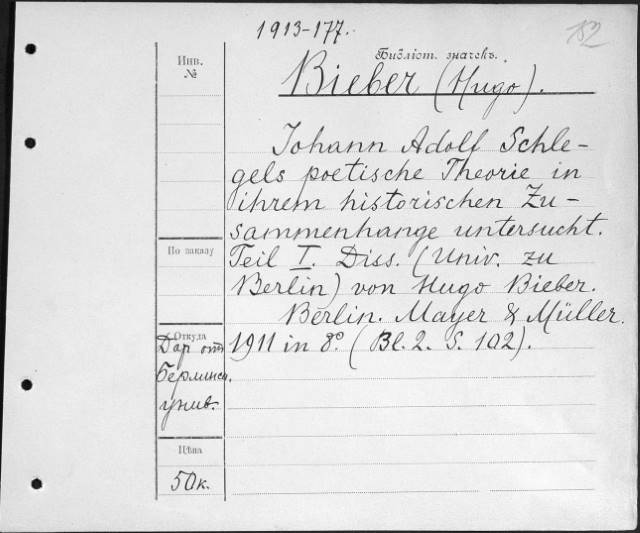 1913-177.
182
Инв.
№
Библіот. значекъ.
Bieber (Hugo).
Johann Adolf Schle-
gels poetische Theorie in
ihrem historischen Zu-
sammenhange untersucht.
По заказу
Teil I. Diss. (Univ. zu
Berlin) von Hugo Bieber.
Berlin. Mayer & Müller.
Откуда
Дар отъ
1911 in 8°. (Bl. 2. S. 102).
Берлинск.
унив.
Цѣна
50к.